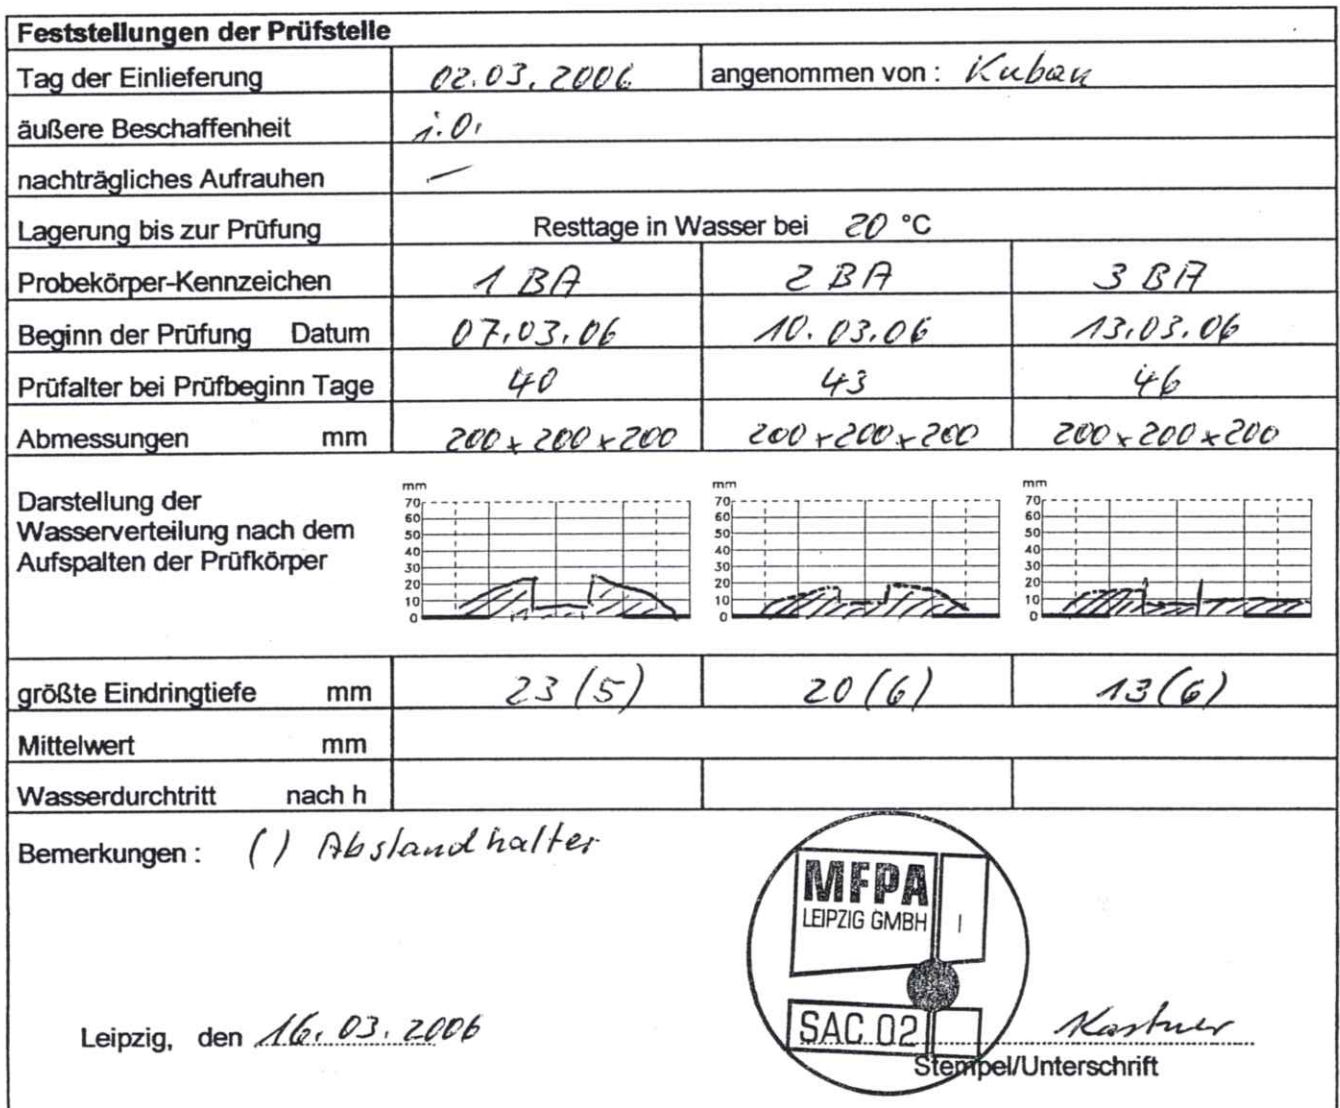 Feststellungen der Prüfstelle
Tag der Einlieferung 02.03.2006 angenommen von : Kuban
äußere Beschaffenheit i.O.
nachträgliches Aufrauhen —
Lagerung bis zur Prüfung Resttage in Wasser bei 20 °C
Probekörper-Kennzeichen 1 BA 2 BA 3 BA
Beginn der Prüfung Datum 07.03.06 10.03.06 13.03.06
Prüfalter bei Prüfbeginn Tage 40 43 46
Abmessungen mm 200x200x200 200x200x200 200x200x200
Darstellung der
Wasserverteilung nach dem
Aufspalten der Prüfkörper
mm mm mm
70 70 70
60 60 60
50 50 50
40 40 40
30 30 30
20 20 20
10 10 10
0 0 0
größte Eindringtiefe mm 23 (5) 20 (6) 13 (6)
Mittelwert mm
Wasserdurchtritt nach h
Bemerkungen : ( ) Abstandhalter
MFPA
LEIPZIG GMBH
SAC 02
Leipzig, den 16.03.2006 Kastner
Stempel/Unterschrift